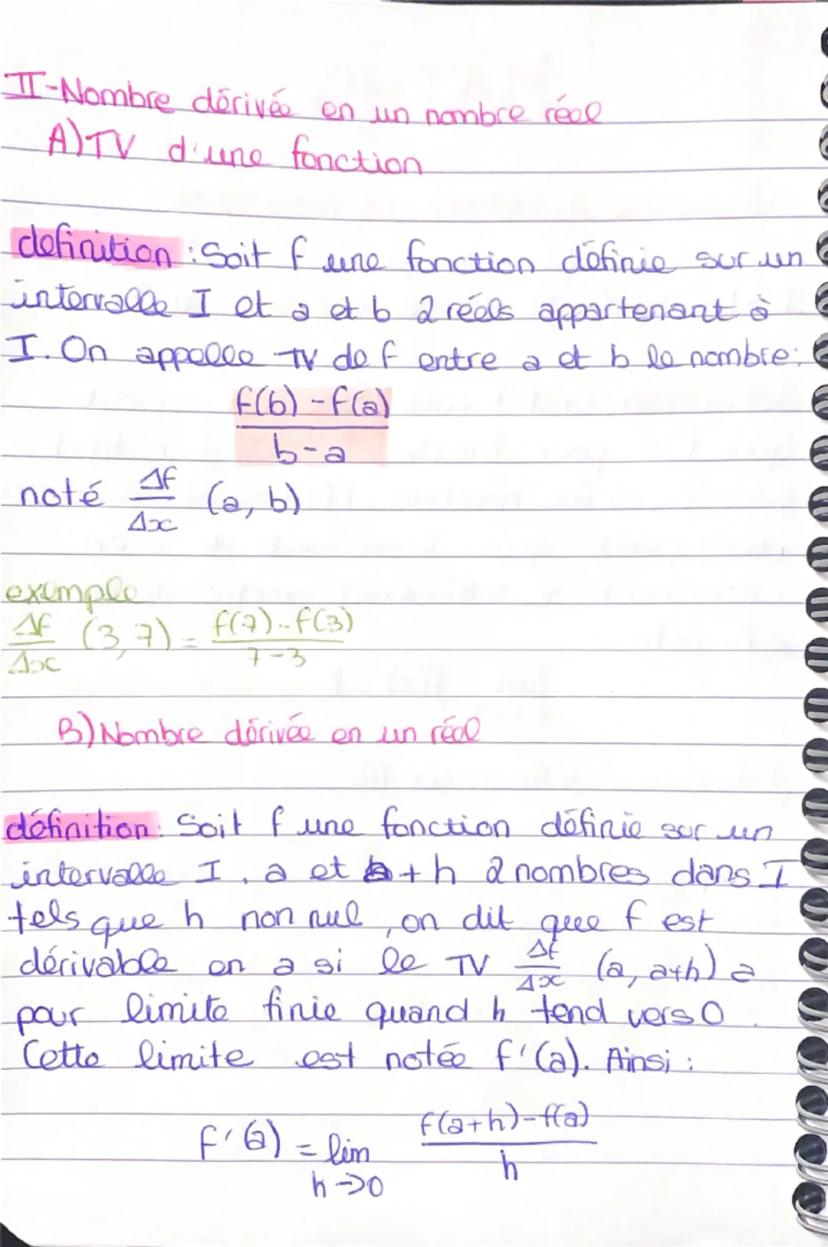 II-Nombre dérivée en un nombre réel
A) TV d'une fonction
definition : Soit f une fonction définie sur un
intervalle I et a et b 2 réels appartenant à
I. On appelle TV de f entre a et b le nombre:
f(b) - f(a)
b - a
noté Δf/Δx (a, b)
exemple
Δf/Δx (3,7) = f(7)-f(3)/7-3
B) Nombre dérivée en un réel
définition: Soit f une fonction définie sur un
intervalle I, a et a+h 2 nombres dans I
tels que h non nul, on dit que f est
dérivable en a si le TV Δf/Δx (a, a+h) a
pour limite finie quand h tend vers 0.
Cette limite est notée f'(a). Ainsi :
f'(a) = lim f(a+h)-f(a)/h
h→0